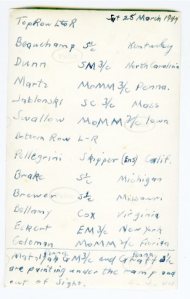 Top Row L to R Sat 25 March 1944
Beauchamp S 1/c Kentucky
Dunn SM 3/c North Carolina
Martz MoMM 3/c Penna.
Jablonski SC 3/c Mass
Swallow MoMM 3/c Iowa
Bottom Row L-R
Pellegrini Skipper (Ens) Calif.
Brake S 1/c Michigan
Brewer S 1/c Missouri
Bellamy Cox Virginia
Eckert EM 3/c New York
Coleman MoMM 3/c Florida
GM 3/c and
are painting under the ramp and
out of sight.